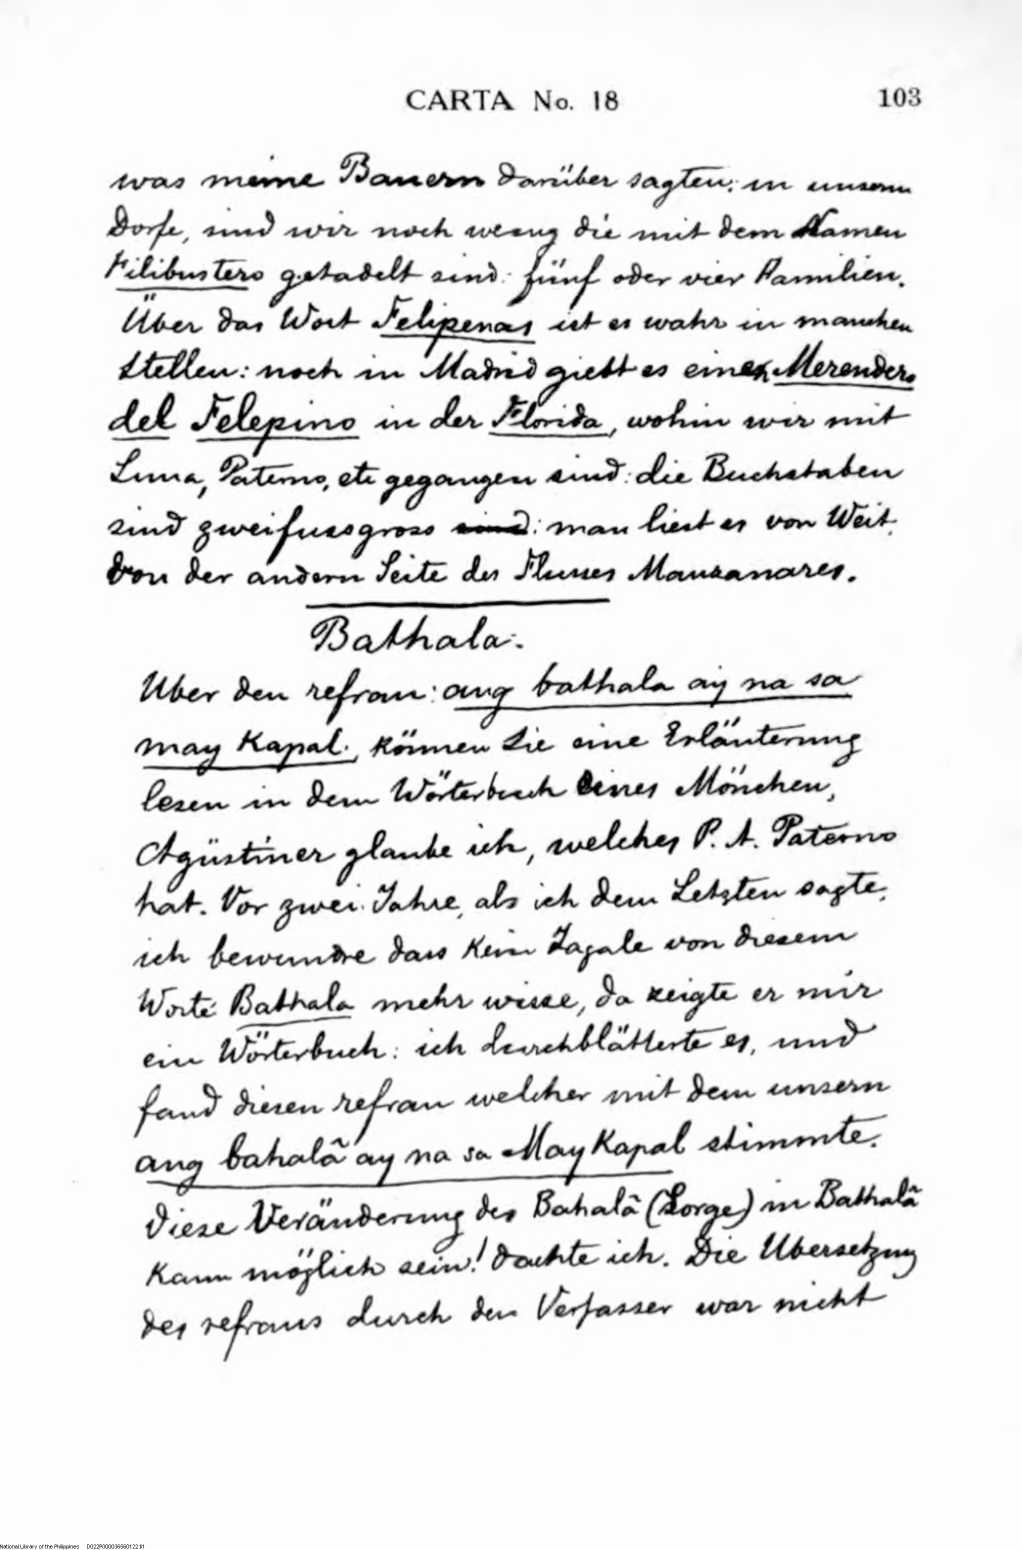 CARTA No. 18 103
was meine Bauern darüber sagten: in unserm
Dorfe, sind wir noch wenig die mit dem Namen
Filibustero getadelt sind: fünf oder vier Familien.
Über das Wort Felipenas ist es wahr in manchen
Stellen: noch in Madrid giebt es einen Merendero
del Felepino in der Florida, wohin wir mit
Luna, Paterno, etc gegangen sind: die Buchstaben
sind zweifussgross sind: man liest es von Weit.
Von der andern Seite des Flusses Manzanares.
Bathala:
Uber den refran: ang bathala ay na sa
may Kapal., können Sie eine Erläuterung
lesen in dem Wörterbuch eines Mönchen,
Agüstiner glaube ich, welches P. A. Paterno
hat. Vor zwei Jahre, als ich dem Letzten sagte,
ich bewundre dass kein Tagale von diesem
Worte Bathala mehr wisse, da zeigte er mir
ein Wörterbuch: ich durchblätterte es, und
fand diesen refran welcher mit dem unsern
ang bahalã ay na sa May Kapal stimmte.
Diese Veränderung des Bahalã (Sorge) in Bathalã
kann möglich sein! dachte ich. Die Ubersetzung
des refrans durch den Verfasser war nicht
National Library of the Philippines